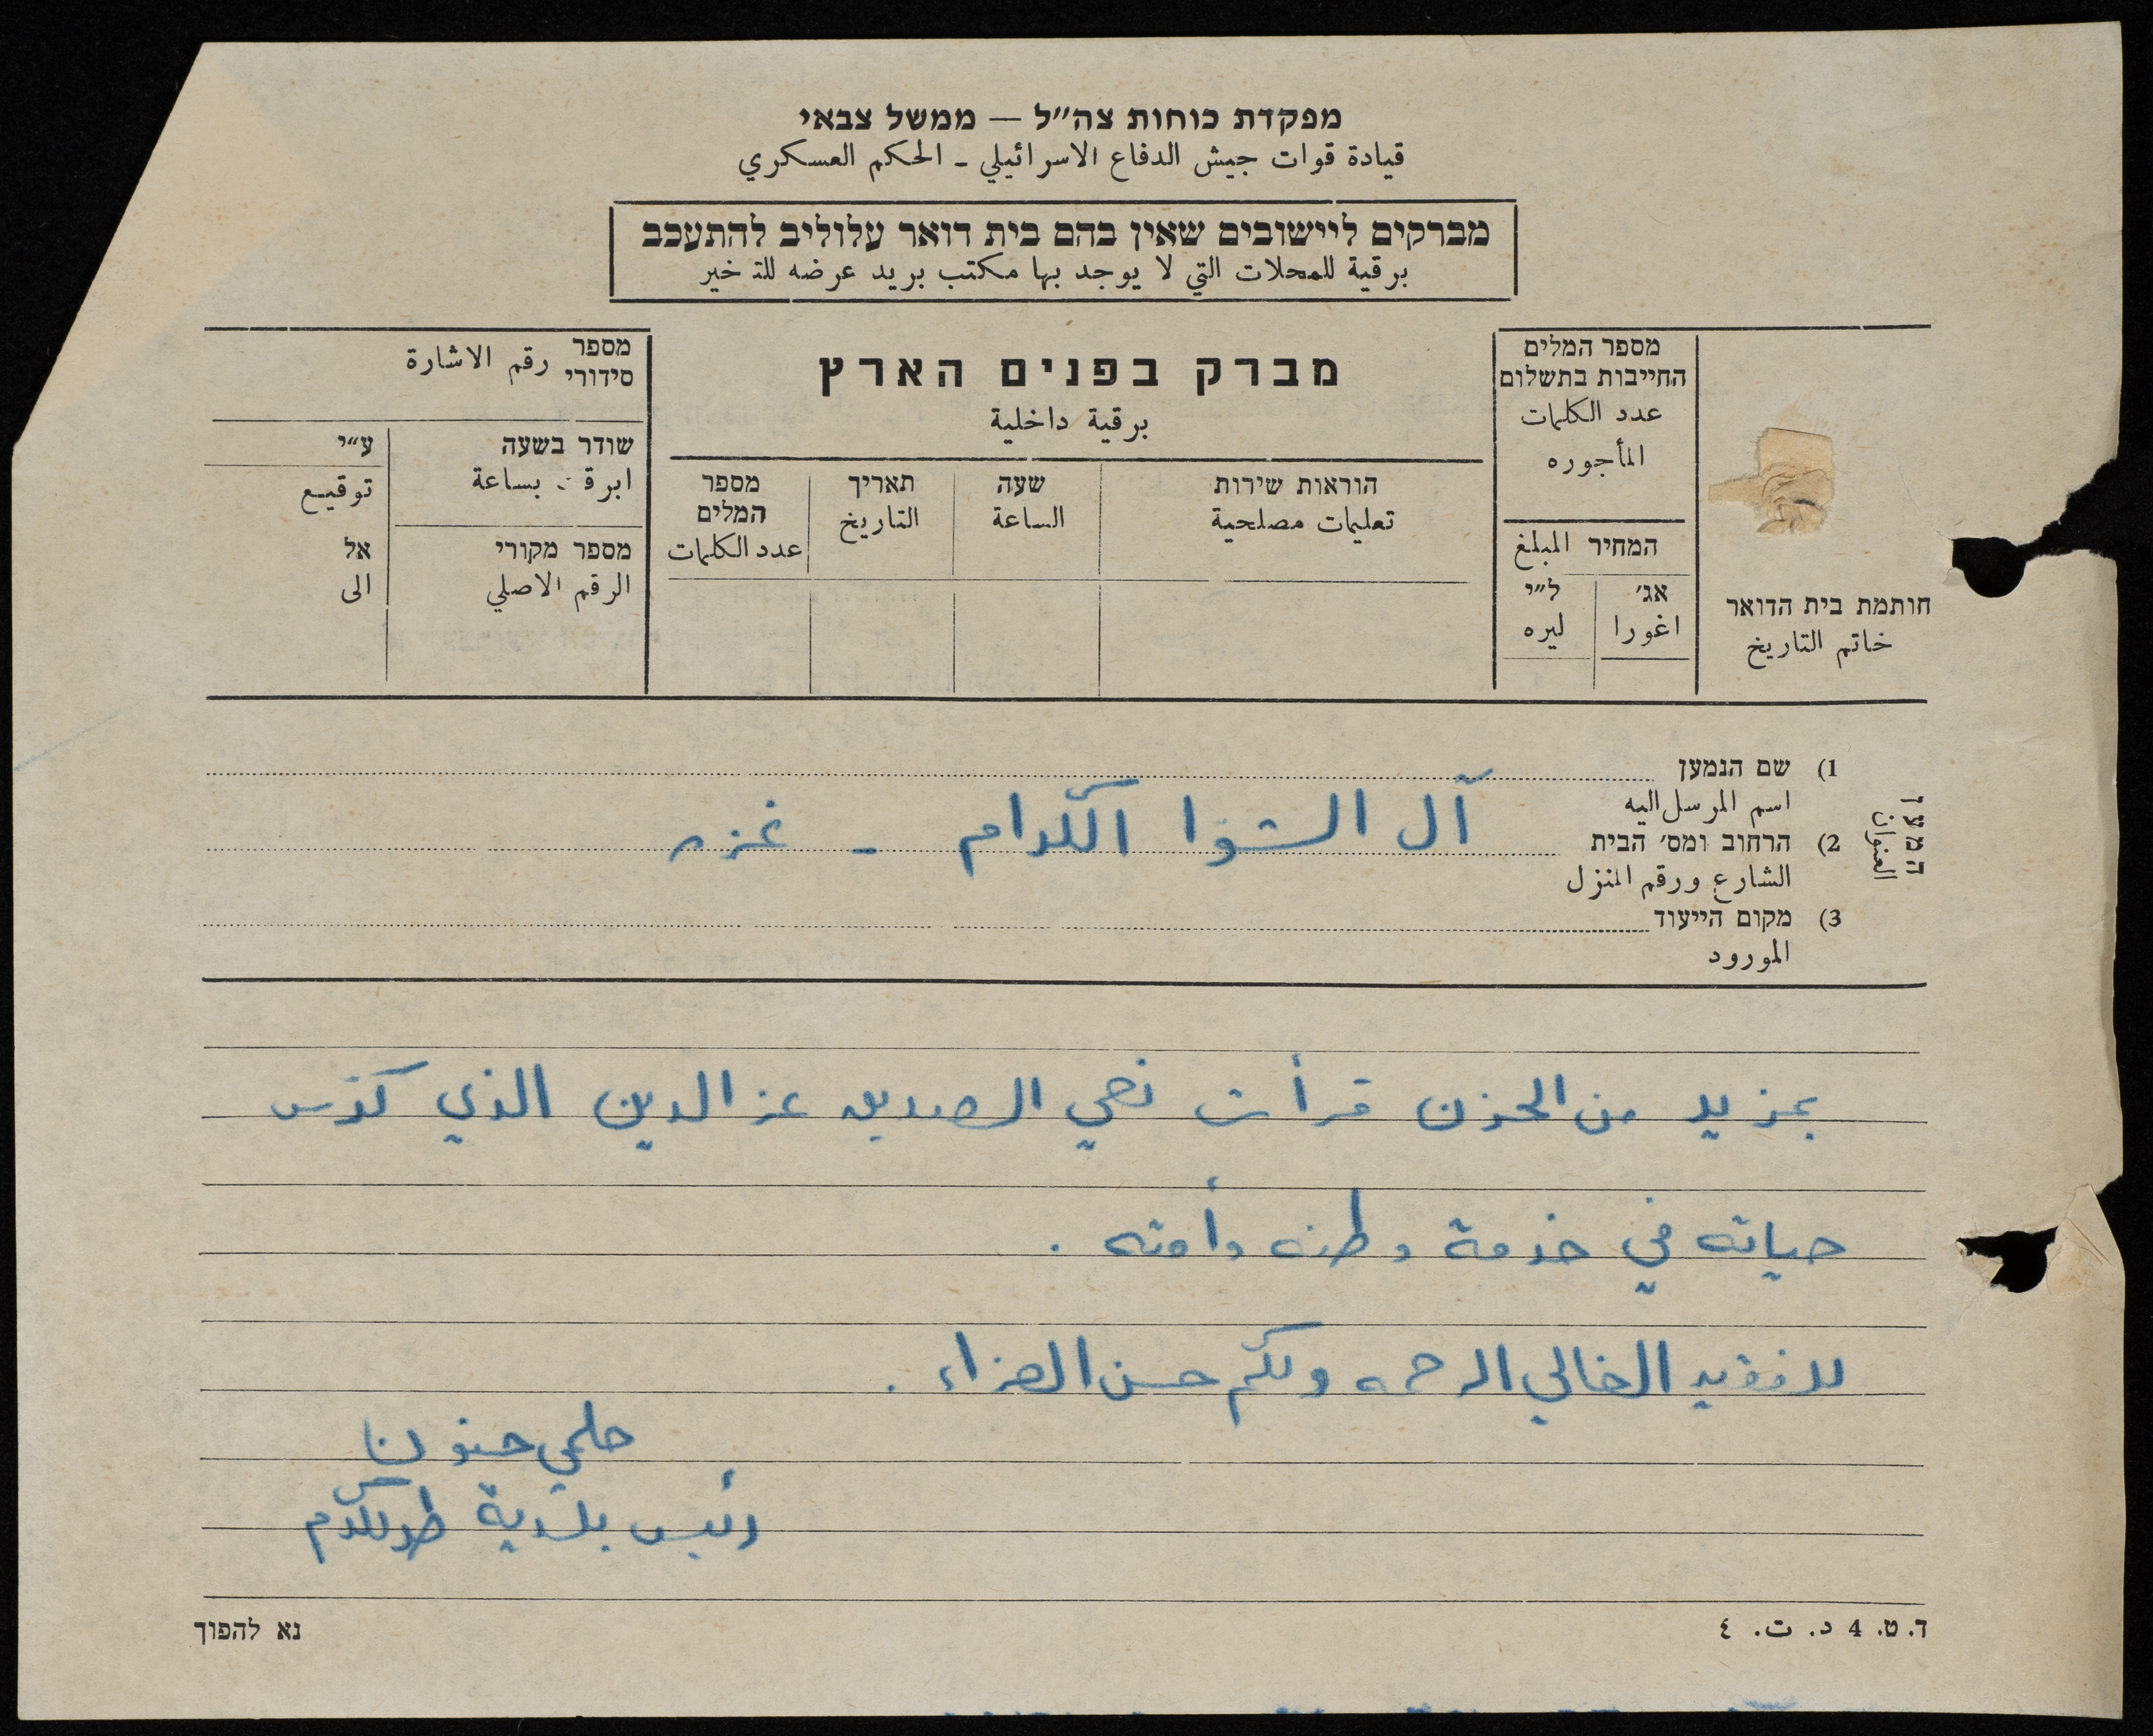 מפקדת כוחות צה״ל — ממשל צבאי
قيادة قوات جيش الدفاع الاسرائيلي - الحكم العسكري
מברקים ליישובים שאין בהם בית דואר עלוליב להתעכב
برقية للمحلات التي لا يوجد بها مكتب بريد عرضه للتـ خير
מברק בפנים הארץ
برقية داخلية
חותמת בית הדואר
خاتم التاريخ
מספר המלים
החייבות בתשלום
عدد الكلمات
المأجوره
המחיר المبلغ
אג׳ ל״י
اغورا ليره
הוראות שירות
تعليمات مصلحية
שעה
الساعة
תאריך
التاريخ
מספר
המלים
عدد الكلمات
מספר
סידורי رقم الاشارة
שודר בשעה
ابرقت بساعة
ע״י
توقيع
מספר מקורי
الرقم الاصلي
אל
الى
המען
العنوان
1) שם הנמען
اسم المرسل اليه
آل الشوا الكرام - غزه
2) הרחוב ומס׳ הבית
الشارع ورقم المنزل
3) מקום הייעוד
المورود
بمزيد من الحزن قرأت نعي الصديق عز الدين الذي كرس
حياته في خدمة وطنه وأمته .
للفقيد الغالي الرحمه ولكم حسن العزاء .
حلمي حنون
رئيس بلدية طولكرم
ד. ט. 4 د. ت. ٤
נא להפוך